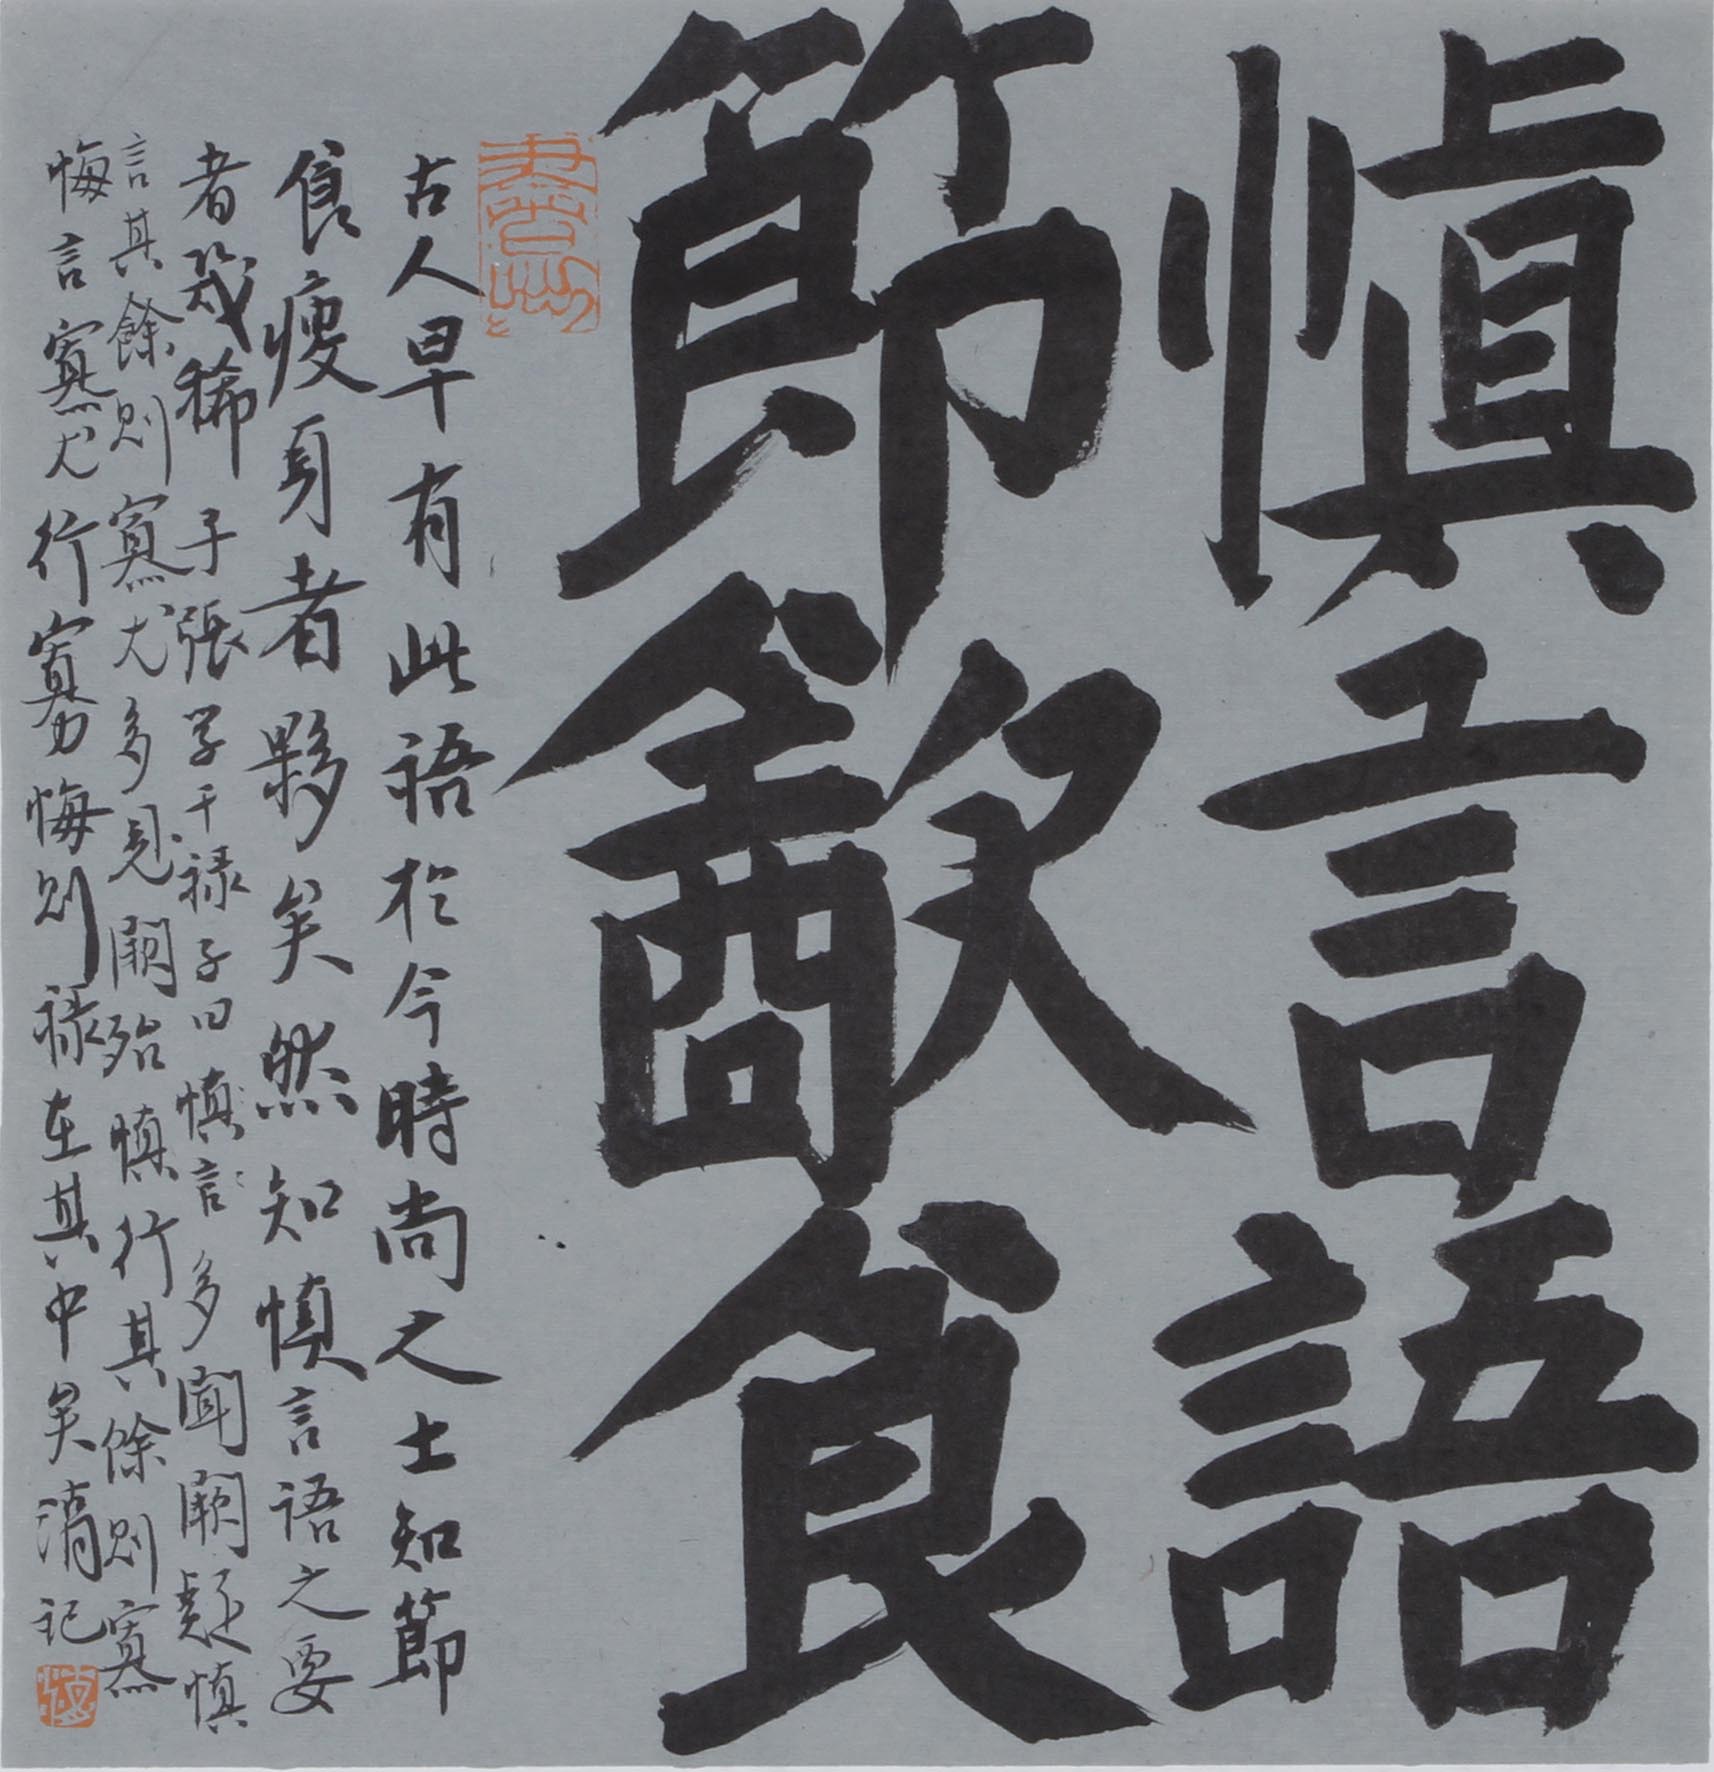 慎言語
節飲食
古人早有此語於今時尚之士知節
食瘦身者夥矣然知慎言語之要
者幾稀子張学干禄子曰慎言多聞闕疑慎
言其餘則寡尤多見闕殆慎行其餘則寡
悔言寡尤行寡悔則禄在其中矣 記